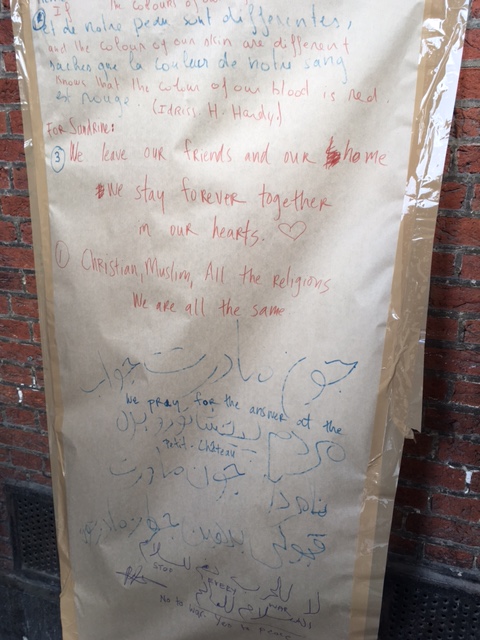 If the colours of our
② et de notre peau sont différentes,
and the colour of our skin are different
saches que la couleur de notre sang
Knows that the colour of our blood is red.
est rouge. (Idriss. H. Handy.)
For Sandrine:
③ We leave our friends and our home
We stay forever together
in our hearts. ♡
① Christian, Muslim, All the religions
We are all the same
جون مادرت جواب
We pray for the answer at the
مردم
Petit-Château
جون مادرت
قبولی بدهین جون مادرتون
لا للحرب نعم للسلام
STOP EVERY
السلام للعالم
No to war Yes to Peace